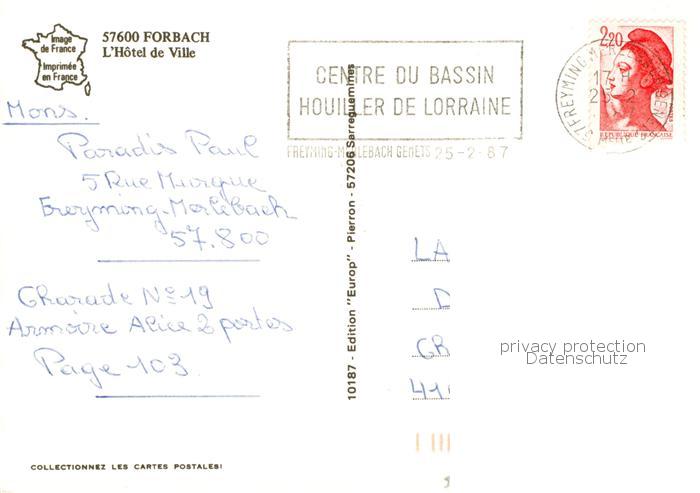 Image
de France
Imprimée
en France
57600 FORBACH
L'Hôtel de Ville
CENTRE DU BASSIN
HOUILLER DE LORRAINE
FREYMING-MERLEBACH GENETS 25-2-87
2,20
REPUBLIQUE FRANÇAISE
57 FREYMING MERLEBACH
Mons.
Paradis Paul
5 Rue
Freyming-Merlebach
57.800
Charade No 19
Armoire Alice 2 portes
Page 103
10187 - Edition "Europ" - Pierron - 57206 Sarreguemines
LA
D
GR
41
privacy protection
Datenschutz
COLLECTIONNEZ LES CARTES POSTALES!